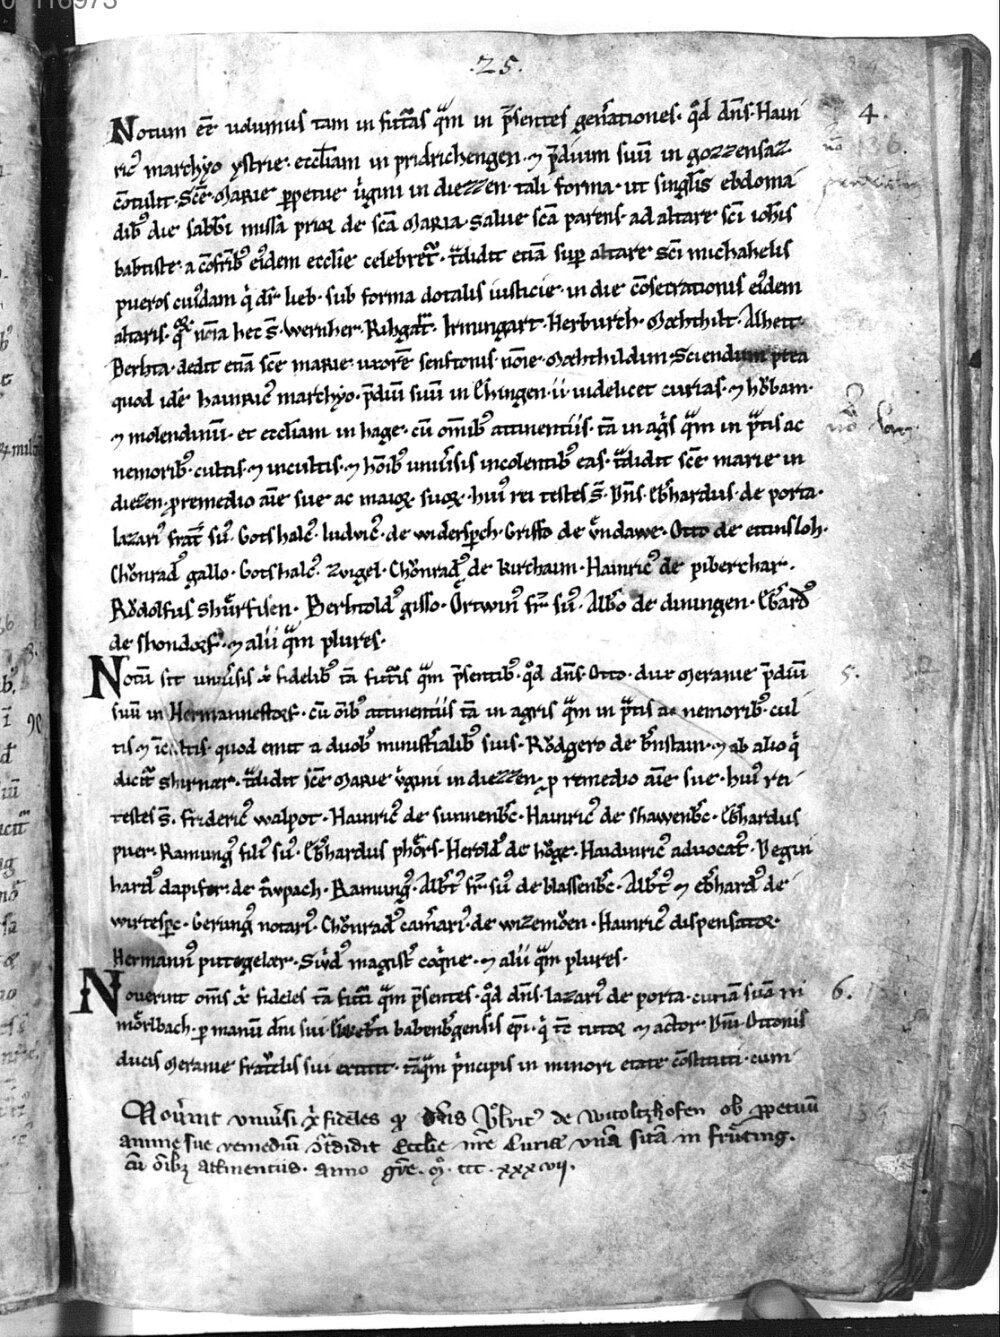 .25.
Notum eē uolumus tam in futuͣras qͣm in p̄sentes gen̄ationes. qͦd dn̄s. Hain
ricꝰ marchyo ystrie. eccl̄iam in pridrichengen. ⁊ p̄dium suū in gozzensaz
c̄otulit. Sc̄e Marie ꝑpetue uͥgini in diezzen. tali forma. ut singl̄is ebdoma
dibꝰ die sabb̄i missā prior de sc̄a Maria. Salue sc̄a parens. ad altare sc̄i ioh̄is
babtiste. a c̄ofrībꝰ eiꝰdem eccl̄ie celebret᷑. t͛didit etiā suꝑ altare sc̄i michahelis
pueros cuiꝰdam qͥ dr̄ lieb. sub forma dotalis iusticie. in die c̄osecrationis eiꝰdem
altaris. qͦꝝ nōia hec s̄. Wernher. Rihgart. Irmingart. Herburch. Mæhthilt. Alheit.
Berhta. dedit etiā sc̄e marie uxorē senftonis nōie. Mæhthildim. Sciendum ptea
quod idē hainricꝰ marchyo. p̄diū suū in Ehingen. ii. uidelicet curias. ⁊ hͦbam.
⁊ molendinū. et eccl̄iam in hage. cū om̄ibꝰ attinentiis. tā in agͥs qͣm in pͣtis ac
nemoribꝰ. cultis. ⁊ incultis. ⁊ hōibꝰ uniuͥsis incolentibꝰ eas. t͛didit sc̄e marie in
diezen. ꝓ remedio aīe sue ac maioꝝ suoꝝ. huiꝰ rei testes s̄. Dn̄s. Eb̄hardus. de porta.
lazariꝰ frat͛ suꝰ. Gotshalcꝰ. ludwicꝰ. de widersp̄ch. Griffo de Uͦndawe. Otto de ettinsloh.
Chͦnradꝰ gallo. Gotshalcꝰ. Zwigel. Chͦnradꝰ de kirchaim. Hainricꝰ de piberchar.
Rͦdolfus shuͤrfisen. Berhtoldꝰ gisso. Ortwinꝰ fr̄ suꝰ. Alb̄o de diningen. Eb̄ardꝰ
de shondorf. ⁊ alii qͣm plures.
Notū sit uniuͥsis x̄ fidelibꝰ tā futͥis qͣm p̄sentibꝰ. qͦd dn̄s. Otto. dux Meranie p̄diū
suū in Hermannestorf. cū oībꝰ attinentiis tā in agris qͣm in pͣtis ac nemoribꝰ. cul
tis ⁊ īcultis. quod emit a duobꝰ minist͛ialibꝰ suis. Rͦdgero de ⁊ ab alio qͥ
dicit᷑ shirnær. t͛didit sc̄e Marie uͥgini in diezzen. ꝓ remedio aīe sue. huiꝰ rei
testes s̄. fridericꝰ walpot. Hainricꝰ de sunnenb̄c. Hainricꝰ de shawenb̄c. Eb̄hardus
puer. Ramungꝰ filiꝰ suꝰ. Eb̄hardus Heroldꝰ de hͦge. Haidinricꝰ aduocatꝰ. Megin
hardꝰ dapifer. de Ramungꝰ. Alb̄tꝰ fr̄ suꝰ de blassenb̄c. Alb̄tꝰ ⁊ eb̄hardꝰ de
wirtesp̄c. Gerungꝰ notariꝰ. Chͦnradꝰ cam̄ariꝰ. de wizemͦen. Hainricꝰ dispensator.
Hermannꝰ puttegelær. magist͛ coqͥne. ⁊ alii qͣm plures.
Nouerint om̄s x̄ fideles tā futuͥ qͣm p̄sentes. qͦd dn̄s. lazariꝰ de porta. curiā suā in
mͤrlbach. ꝑ manū dn̄i sui babenb̄gensis ep̄i. qͥ tē tutor ⁊ actor dn̄i Ottonis
ducis Meranie frat͛elis sui extitit. tāqͣm pͥncipis in minori etate c̄ostituti. cum
Nou͛int uniu͛si x̄ fideles ꝙ dn̄s Vͦlricꝰ de Witoltzhofen ob ꝑpetuū
anime sue remediū t͛didit Eccl̄ie nr̄e Curiā unā sitā in
cū oībꝫ attinentiis. anno gr̄e. Mͦ. ccc. xxxvii.
4.
136.
5.
6.